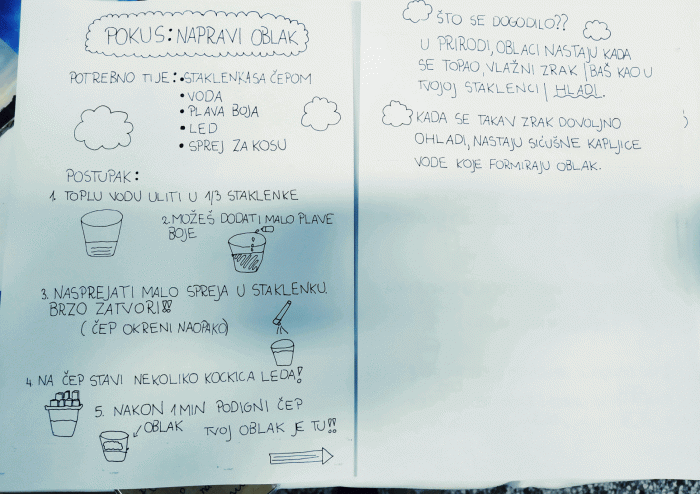 POKUS: NAPRAVI OBLAK
POTREBNO TI JE: • STAKLENKA SA ČEPOM
• VODA
• PLAVA BOJA
• LED
• SPREJ ZA KOSU
POSTUPAK:
1. TOPLU VODU ULITI U 1/3 STAKLENKE
2. MOŽEŠ DODATI MALO PLAVE
BOJE
3. NASPREJATI MALO SPREJA U STAKLENKU.
BRZO ZATVORI!!
(ČEP OKRENI NAOPAKO)
4. NA ČEP STAVI NEKOLIKO KOCKICA LEDA!
5. NAKON 1 MIN PODIGNI ČEP
OBLAK
TVOJ OBLAK JE TU!!
ŠTO SE DOGODILO??
U PRIRODI, OBLACI NASTAJU KADA
SE TOPAO, VLAŽNI ZRAK | BAŠ KAO U
TVOJOJ STAKLENCI | HLADI.
KADA SE TAKAV ZRAK DOVOLJNO
OHLADI, NASTAJU SIĆUŠNE KAPLJICE
VODE KOJE FORMIRAJU OBLAK.